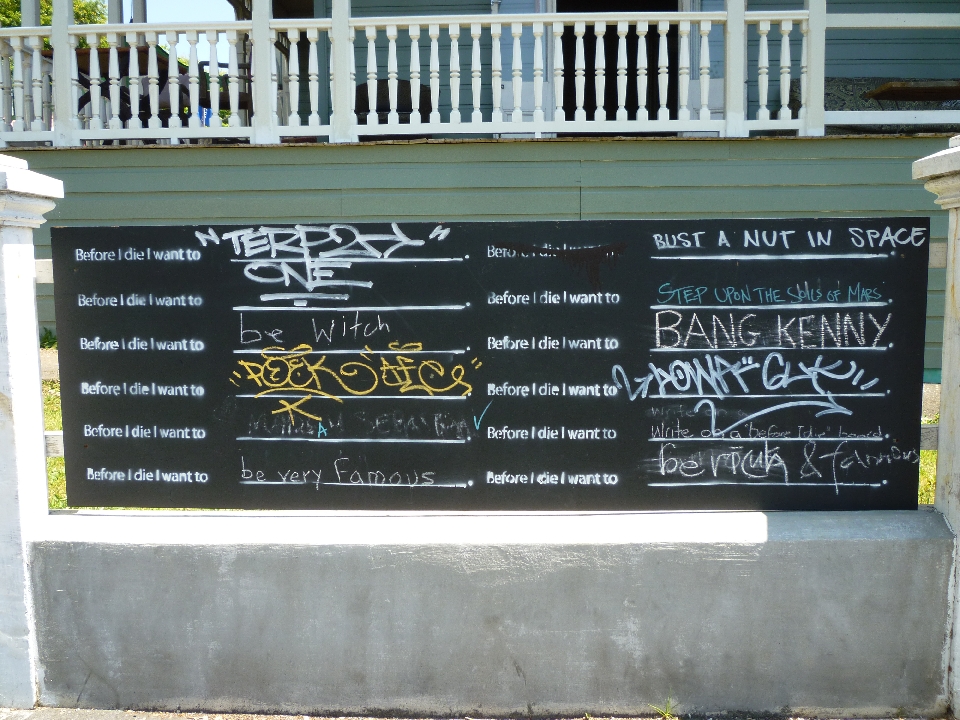 Before I die I want to
Before I die I want to
Before I die I want to be witch
Before I die I want to
Before I die I want to
Before I die I want to be very famous.
Before I die I want to BUST A NUT IN SPACE.
Before I die I want to STEP UPON THE SOILS OF MARS.
Before I die I want to BANG KENNY.
Before I die I want to
Before I die I want to Write on a "before I die" board.
Before I die I want to be rich & famous.